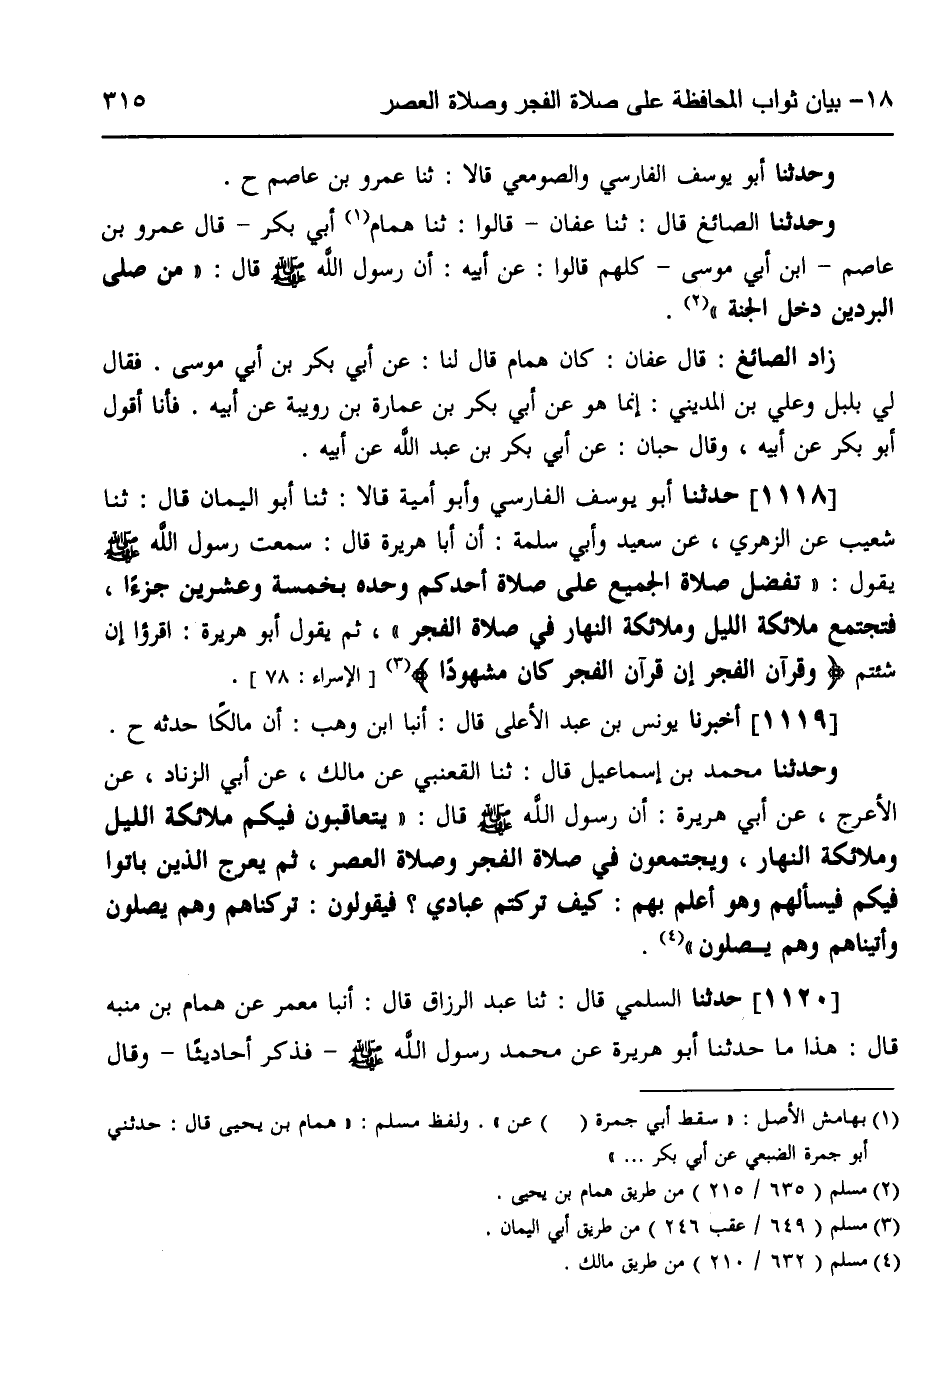 ١٨- بيان ثواب المحافظة على صلاة الفجر وصلاة العصر ٣١٥
وحدثنا أبو يوسف الفارسي والصومعي قالا : ثنا عمرو بن عاصم ح .
وحدثنا الصائغ قال : ثنا عفان - قالوا : ثنا همام(١) أبي بكر - قال عمرو بن
عاصم - ابن أبي موسى - كلهم قالوا : عن أبيه : أن رسول اللَّه ﷺ قال : « من صلى
البردين دخل الجنة »(٢) .
زاد الصائغ : قال عفان : كان همام قال لنا : عن أبي بكر بن أبي موسى . فقال
لي بلبل وعلي بن المديني : إنما هو عن أبي بكر بن عمارة بن رويبة عن أبيه . فأنا أقول
أبو بكر عن أبيه ، وقال حبان : عن أبي بكر بن عبد اللَّه عن أبيه .
[١١١٨] حدثنا أبو يوسف الفارسي وأبو أمية قالا : ثنا أبو اليمان قال : ثنا
شعيب عن الزهري ، عن سعيد وأبي سلمة : أن أبا هريرة قال : سمعت رسول اللَّه ﷺ
يقول : « تفضل صلاة الجميع على صلاة أحدكم وحده بخمسة وعشرين جزءًا ،
فتجتمع ملائكة الليل وملائكة النهار في صلاة الفجر » ، ثم يقول أبو هريرة : اقرؤا إن
شئتم ﴿ وقرآن الفجر إن قرآن الفجر كان مشهودًا ﴾(٣) [ الإسراء : ٧٨ ] .
[١١١٩] أخبرنا يونس بن عبد الأعلى قال : أنبا ابن وهب : أن مالكًا حدثه ح .
وحدثنا محمد بن إسماعيل قال : ثنا القعنبي عن مالك ، عن أبي الزناد ، عن
الأعرج ، عن أبي هريرة : أن رسول اللَّه ﷺ قال : « يتعاقبون فيكم ملائكة الليل
وملائكة النهار ، ويجتمعون في صلاة الفجر وصلاة العصر ، ثم يعرج الذين باتوا
فيكم فيسألهم وهو أعلم بهم : كيف تركتم عبادي ؟ فيقولون : تركناهم وهم يصلون
وأتيناهم وهم يـصلون »(٤) .
[١١٢٠] حدثنا السلمي قال : ثنا عبد الرزاق قال : أنبا معمر عن همام بن منبه
قال : هذا ما حدثنا أبو هريرة عن محمد رسول اللَّه ﷺ - فذكر أحاديثًا - وقال
(١) بهامش الأصل : « سقط أبي جمرة ( ) عن » . ولفظ مسلم : « همام بن يحيى قال : حدثني
أبو جمرة الضبعي عن أبي بكر ... »
(٢) مسلم ( ٦٣٥ / ٢١٥ ) من طريق همام بن يحيى .
(٣) مسلم ( ٦٤٩ / عقب ٢٤٦ ) من طريق أبي اليمان .
(٤) مسلم ( ٦٣٢ / ٢١٠ ) من طريق مالك .